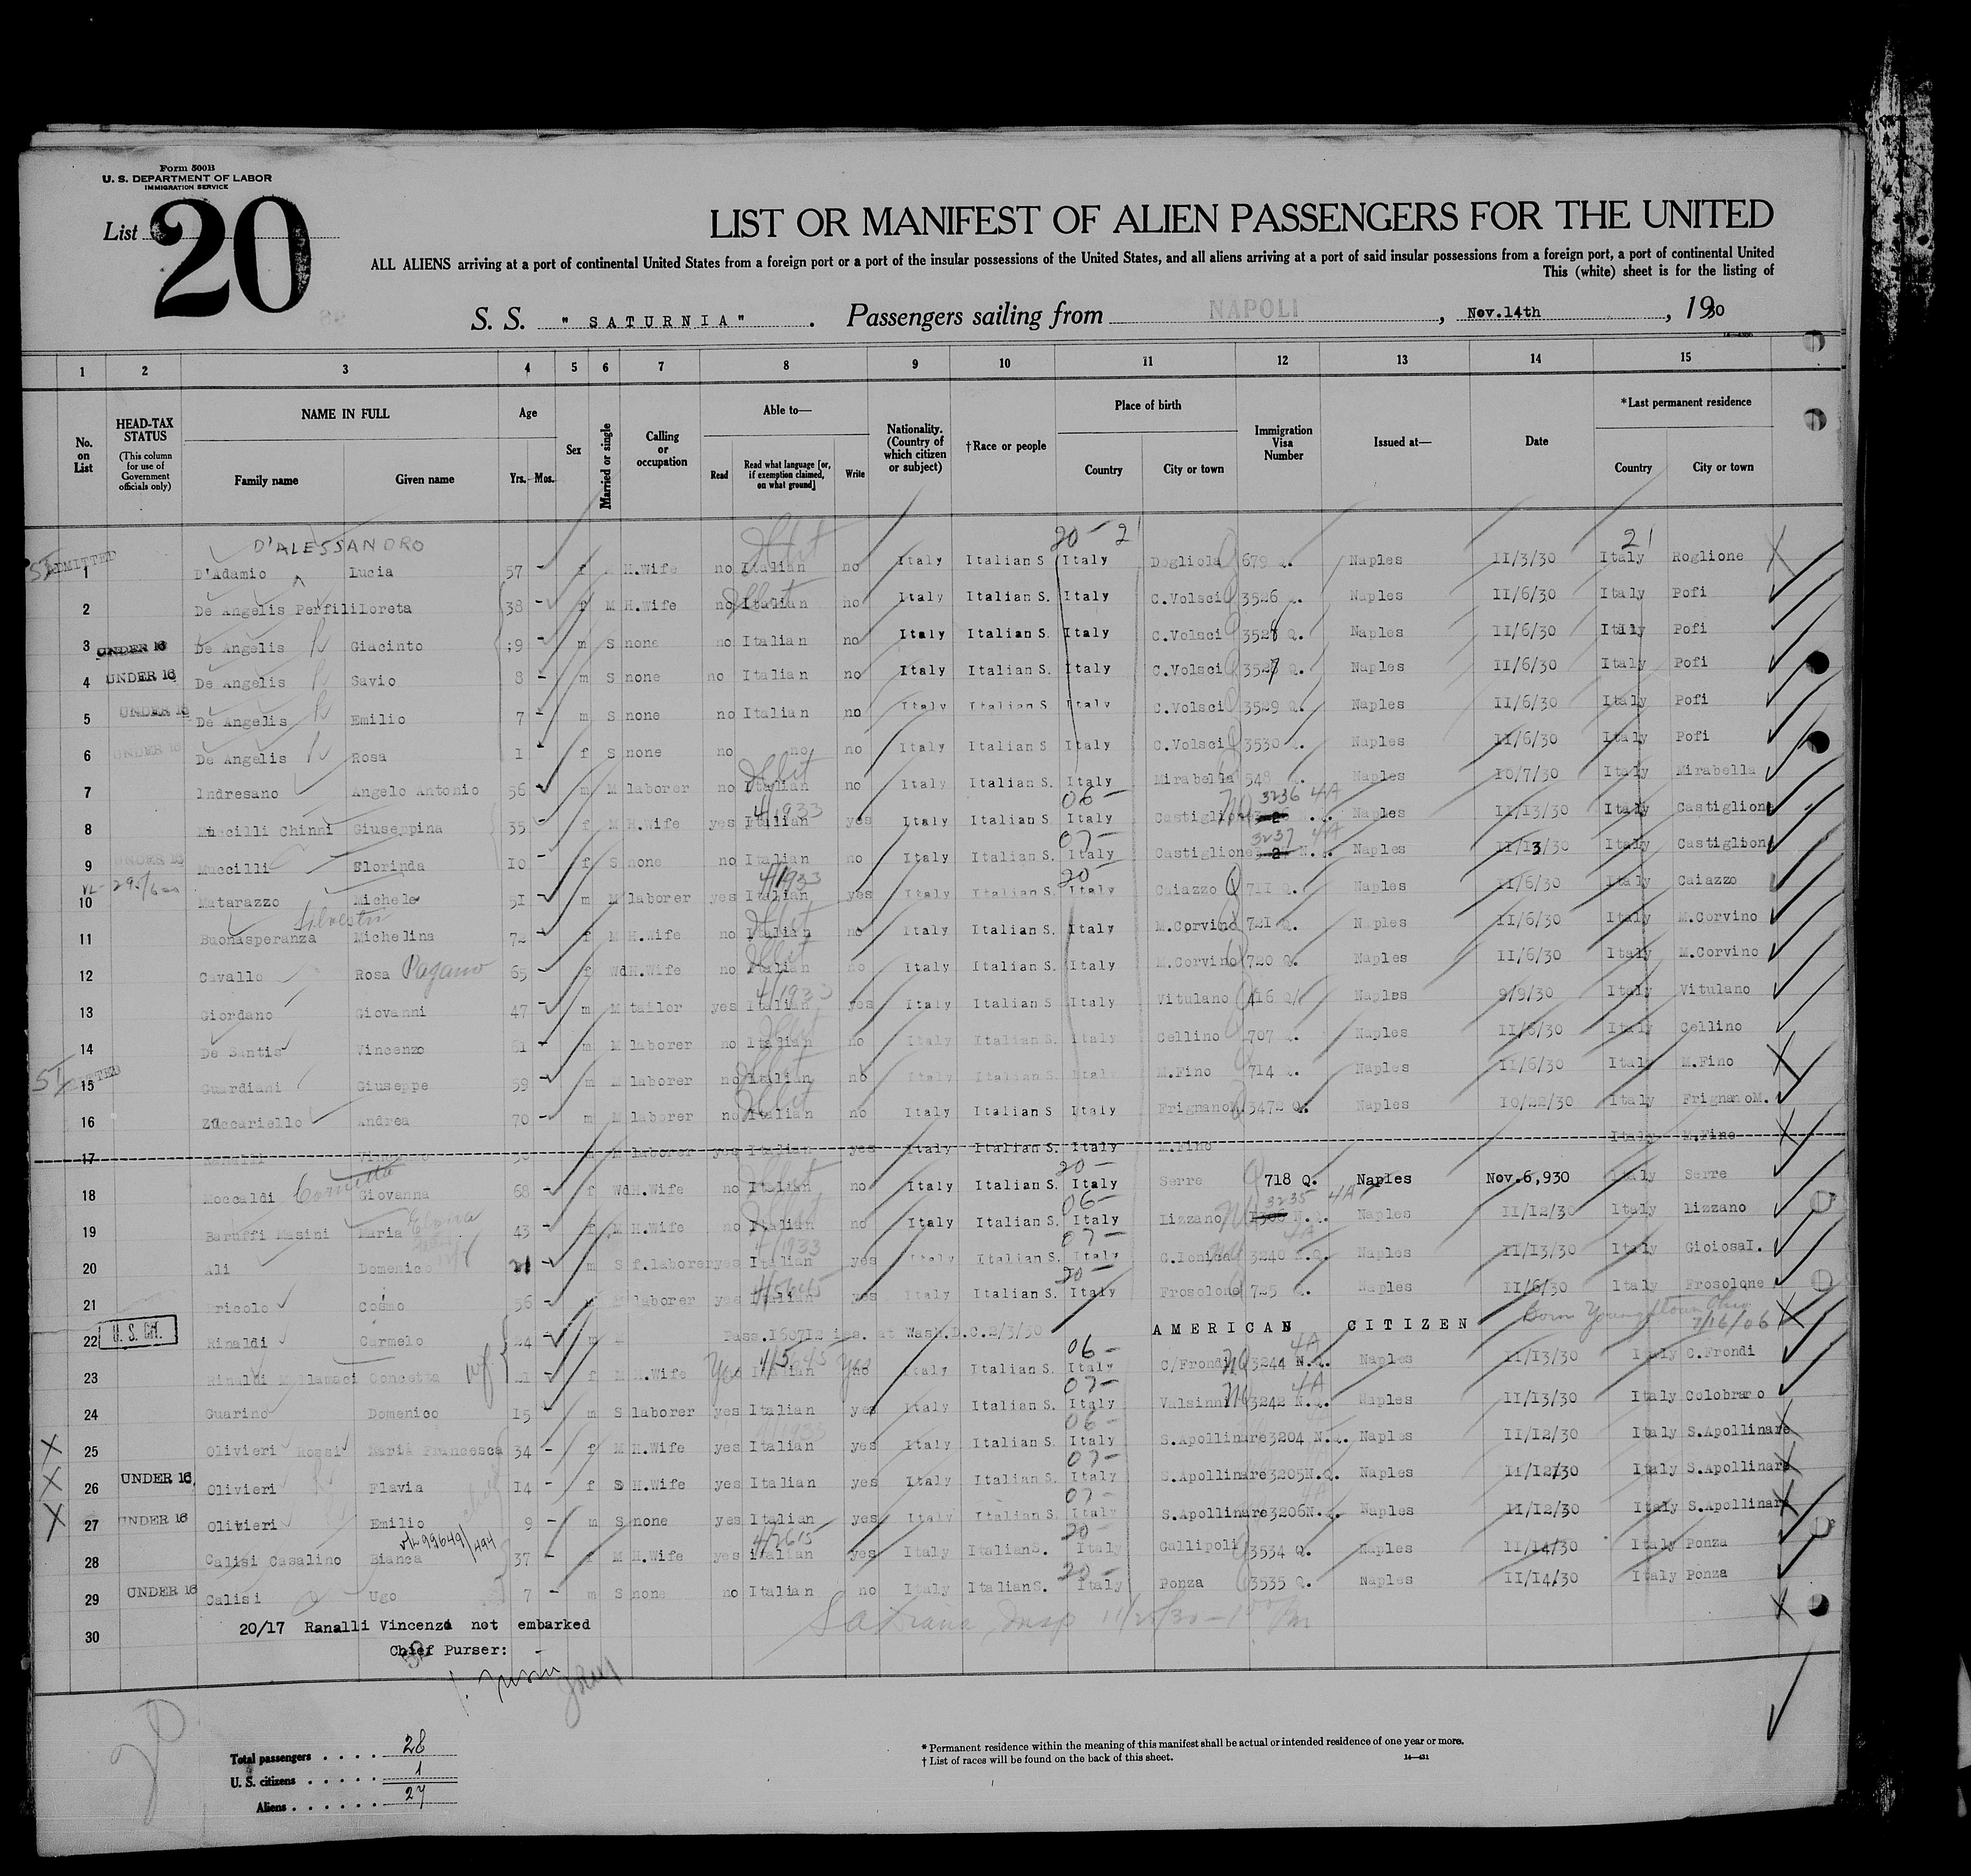 Form 500B
U. S. DEPARTMENT OF LABOR
IMMIGRATION SERVICE
List 20
LIST OR MANIFEST OF ALIEN PASSENGERS FOR THE UNITED
ALL ALIENS arriving at a port of continental United States from a foreign port or a port of the insular possessions of the United States, and all aliens arriving at a port of said insular possessions from a foreign port, a port of continental United
This (white) sheet is for the listing of
S. S. "SATURNIA". Passengers sailing from NAPOLI, Nov.14th, 1930
1 2 3 4 5 6 7 8 9 10 11 12 13 14 15
No. on List
HEAD-TAX STATUS (This column for use of Government officials only)
NAME IN FULL Family name Given name
Age Yrs. Mos.
Sex
Married or single
Calling or occupation
Able to— Read Read what language [or, if exemption claimed, on what ground] Write
Nationality. (Country of which citizen or subject)
†Race or people
Place of birth Country City or town
Immigration Visa Number
Issued at—
Date
*Last permanent residence Country City or town
D'ALESSANDRO 20 - 21 21
1 ADMITTED D'Adamio Lucia 57 - f H.Wife no Italian no Italy Italian S Italy Dogliola 679 Q. Naples 11/3/30 Italy Roglione
2 De Angelis Perfili Loreta 38 - f M H.Wife no Italian no Italy Italian S. Italy C.Volsci 3526 Q. Naples 11/6/30 Italy Pofi
3 UNDER 16 De Angelis Giacinto 9 - m S none no Italian no Italy Italian S. Italy C.Volsci 3528 Q. Naples 11/6/30 Italy Pofi
4 UNDER 16 De Angelis Savio 8 - m S none no Italian no Italy Italian S. Italy C.Volsci 3527 Q. Naples 11/6/30 Italy Pofi
5 UNDER 16 De Angelis Emilio 7 - m S none no Italian no Italy Italian S Italy C.Volsci 3529 Q. Naples 11/6/30 Italy Pofi
6 UNDER 16 De Angelis Rosa 1 - f S none no no no Italy Italian S Italy C.Volsci 3530 Q. Naples 11/6/30 Italy Pofi
7 Indresano Angelo Antonio 56 - m M laborer no Italian no Italy Italian S. Italy Mirabella 548 Naples 10/7/30 Italy Mirabella
4/1933 06 - 3236 4A
8 Muccilli Chinni Giuseppina 35 - f M H.Wife yes Italian yes Italy Italian S. Italy Castiglione Naples 11/13/30 Italy Castiglione
07 - 3237 4A
9 UNDER 16 Muccilli Florinda 10 - f S none no Italian no Italy Italian S. Italy Castiglione Naples 11/13/30 Italy Castiglione
4/1933 20 -
10 Matarazzo Michele 51 - m M laborer yes Italian yes Italy Italian S. Italy Caiazzo 711 Q. Naples 11/6/30 Italy Caiazzo
Silvestri
11 Buonasperanza Michelina 72 - f M H.Wife no Italian no Italy Italian S. Italy M.Corvino 721 Q. Naples 11/6/30 Italy M.Corvino
12 Cavallo Rosa Pagano 65 - f Wd H.Wife no Italian no Italy Italian S. Italy M.Corvino 720 Q. Naples 11/6/30 Italy M.Corvino
4/1933
13 Giordano Giovanni 47 - m M tailor yes Italian yes Italy Italian S Italy Vitulano 416 Q. Naples 9/9/30 Italy Vitulano
14 De Santis Vincenzo 61 - m M laborer no Italian no Italy Italian S. Italy Cellino 707 Q. Naples 11/6/30 Italy Cellino
15 Guardiani Giuseppe 59 - m M laborer no Italian no Italy Italian S. Italy M.Fino 714 Q. Naples 11/6/30 Italy M.Fino
16 Zuccariello Andrea 70 - m M laborer no Italian no Italy Italian S Italy FrignanoM. 3472 Q. Naples 10/22/30 Italy FrignanoM.
17 Ranalli Vincenzo m M laborer yes Italian yes Italy Italian S. Italy M.Fino Italy M.Fino
20 -
18 Moccaldi Giovanna 68 - f Wd H.Wife no Italian no Italy Italian S. Italy Serre 718 Q. Naples Nov.6,930 Italy Serre
06 - 3235 4A
19 Baruffi Masini Maria 43 - f M H.Wife no Italian no Italy Italian S. Italy Lizzano N.Q. Naples 11/12/30 Italy Lizzano
4/1933 07 - 4A
20 Ali Domenico 21 - m S f.laborer yes Italian yes Italy Italian S. Italy G.Ionica 3240 N.Q. Naples 11/13/30 Italy GioiosaI.
20 -
21 Cosmo 56 - M laborer yes Italian yes Italy Italian S. Italy Frosolone 725 Q. Naples 11/6/30 Italy Frosolone
Born Youngstown Ohio 7/16/06
22 U. S. Cit. Rinaldi Carmelo 24 - m Pass.160712 iss. at Wash.D.C.2/3/30 AMERICAN CITIZEN
06 - 4A
23 Rinaldi Concetta wf 21 - f M H.Wife Yes Italian Yes Italy Italian S. Italy C/Frondi 3244 N.Q. Naples 11/13/30 Italy C.Frondi
07 - 4A
24 Guarino Domenico 15 - m S laborer yes Italian yes Italy Italian S. Italy Valsinni 3242 N.Q. Naples 11/13/30 Italy Colobraro
06 -
25 Olivieri Rossi Maria Francesca 34 - f M H.Wife yes Italian yes Italy Italian S. Italy S.Apollinare 3204 N.Q. Naples 11/12/30 Italy S.Apollinare
07 -
26 UNDER 16 Olivieri Flavia 14 - f S H.Wife yes Italian yes Italy Italian S. Italy S.Apollinare 3205N.Q. Naples 11/12/30 Italy S.Apollinare
07 -
27 UNDER 16 Olivieri Emilio 9 - m S none yes Italian yes Italy Italian S Italy S.Apollinare 3206N.Q. Naples 11/12/30 Italy S.Apollinare
20 -
28 Calisi Casalino Bianca 37 - f M H.Wife yes italian yes Italy ItalianS. Italy Gallipoli 3534 Q. Naples 11/14/30 Italy Ponza
20 -
29 UNDER 16 Calisi Ugo 7 - m S none no Italian no Italy ItalianS. Italy Ponza 3535 Q. Naples 11/14/30 Italy Ponza
30 20/17 Ranalli Vincenzo not embarked
Chief Purser:
Total passengers . . . . 28
U. S. citizens . . . . . 1
Aliens . . . . . . 27
* Permanent residence within the meaning of this manifest shall be actual or intended residence of one year or more.
† List of races will be found on the back of this sheet.